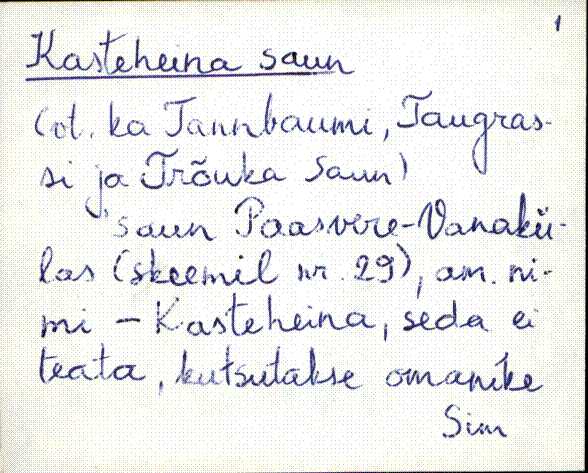 1
Kasteheina saun
(vt. ka Tannbaumi, Taugras-
si ja Trõuka Saun)
'saun Paasvere-Vanakü-
las (skeemil nr. 29), am. ni-
mi - Kasteheina, seda ei
teata, kutsutakse omanike
Sim